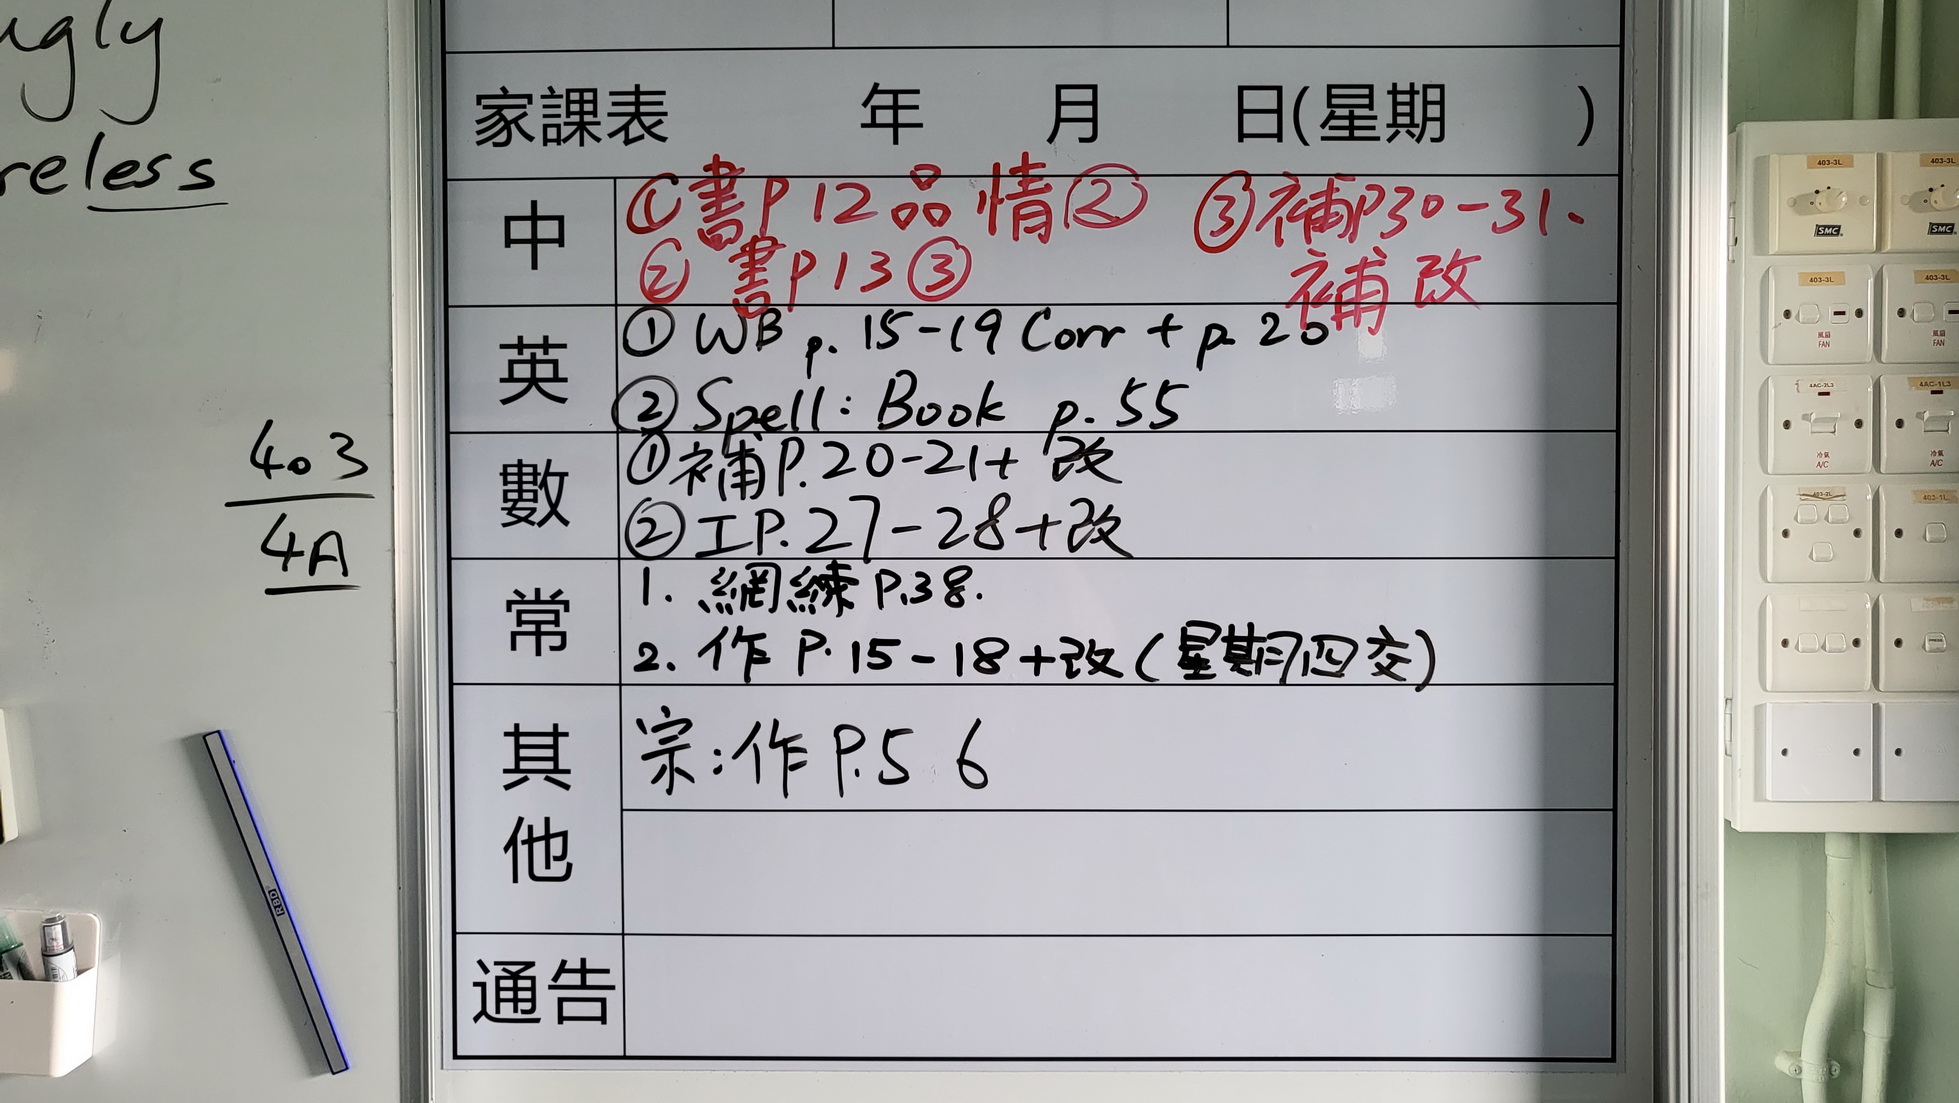 ugly
reless
403
4A
家課表 年 月 日(星期 )
中
①書P12品情② ③補P30-31、
②書P13③ 補改
英
①WB p. 15-19 Corr + p. 20
②Spell: Book p. 55
數
①補P.20-21+改
②工P.27-28+改
常
1. 網練P.38.
2. 作P.15-18+改(星期四交)
其他
宗:作P.5 6
通告
RBD
403-3L
403-3L
SMC
SMC
403-3L
403-3L
風扇
FAN
風扇
FAN
4AC-2L3
4AC-1L3
冷氣
A/C
冷氣
A/C
403-2L
403-1L